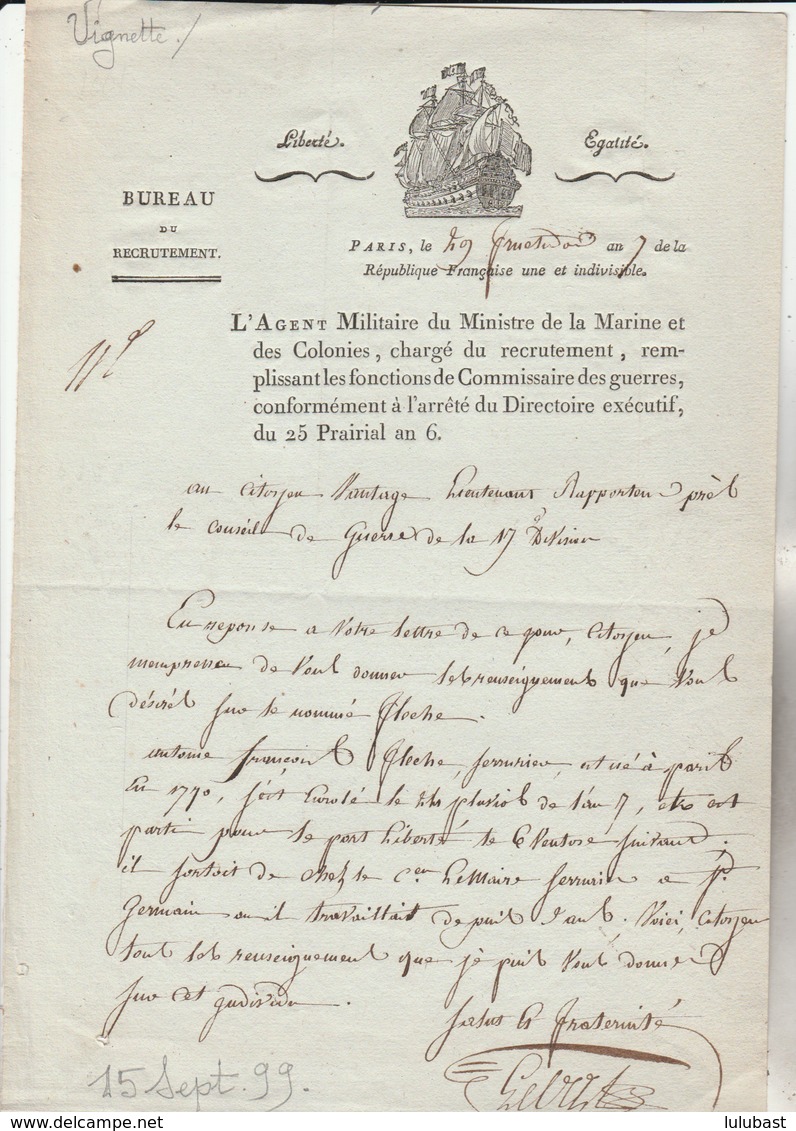 Vignette /
Liberté. Egalité.
BUREAU
DU
RECRUTEMENT.
PARIS, le 29 fructidor an 7 de la
République Française une et indivisible.
L'AGENT Militaire du Ministre de la Marine et
des Colonies, chargé du recrutement, rem-
plissant les fonctions de Commissaire des guerres,
conformément à l'arrêté du Directoire exécutif,
du 25 Prairial an 6.
au Citoyen Vantage Lieutenant Rapporteur près
le Conseil de Guerre de la 17e Division
En reponse a Votre lettre de ce jour, Citoyen, je
mempresse de Vous donner les renseignements que Vous
désirés sur le nommé fleche.
antoine françois fleche, serrurier, est né à paris
En 1770, s'est Enrolé le 24 pluviose de l'an 7, et est
parti pour le port Liberté le 6 Ventose suivant;
il sortait de chez le Cen LeMaire serrurier a St
Germain ou il travaillait depuis 5 ans. Voici, Citoyen
tout les renseignement que je puis Vous donner
sur cet individu.
salut et fraternité
15 Sept. 99.
lulubast